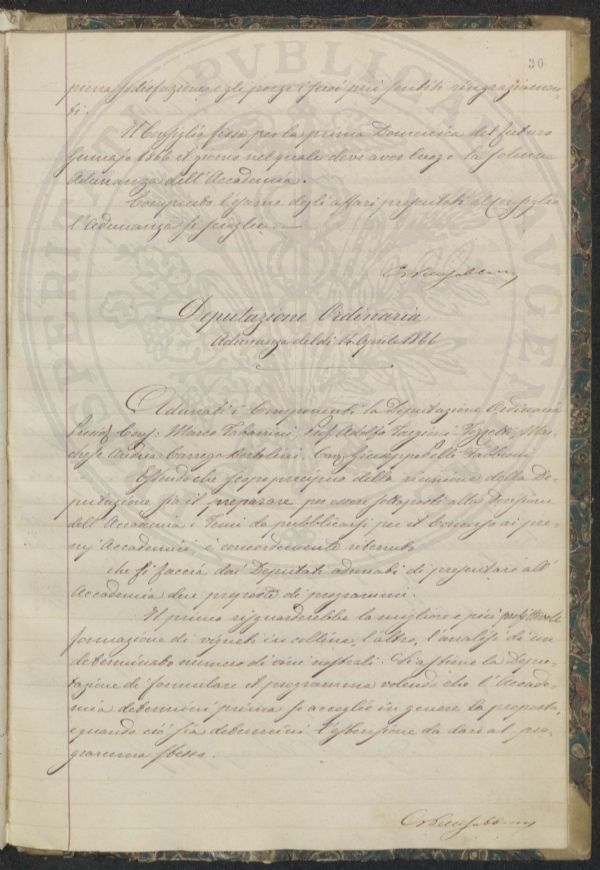 30
piena sodisfazione e gli porge i suoi più sentiti ringraziamen-
ti.
Il Consiglio fissa per la prima Domenica del futuro
Gennajo 1866 il giorno nel quale deve aver luogo la solenne
Adunanza dell'Accademia.
Compiuto l'esame degli affari presentati al Consiglio
l'Adunanza si scioglie.
Deputazione Ordinaria
Adunanza del dì 14 Aprile 1866
Adunati i Componenti la Deputazione Ordinaria
Marco Tabarrini, Prof. Adolfo Targioni Tozzetti, Mar-
chese Carrega Bertolini, Cav. Giuseppe Fabbroni
Essendo che scopo precipuo della riunione della De-
putazione sia il preparare per esser sottoposti alla
dell'Accademia i Temi da pubblicarsi per il Concorso ai pre-
mj Accademici, è concordemente ritenuto
che si faccia dai Deputati adunati di presentare all'
Accademia due proposte di programmi.
Il primo risguarderebbe la migliore e più profittevole
formazione di vigneti in collina, l'altro, l'analisi di un
determinato numero di vini nostrali. Si astiene la Depu-
tazione di formulare il programma volendo che l'Accade-
mia determini prima se accoglie in genere la proposta,
e quando ciò sia determini l'estensione da darsi al pro-
gramma stesso.